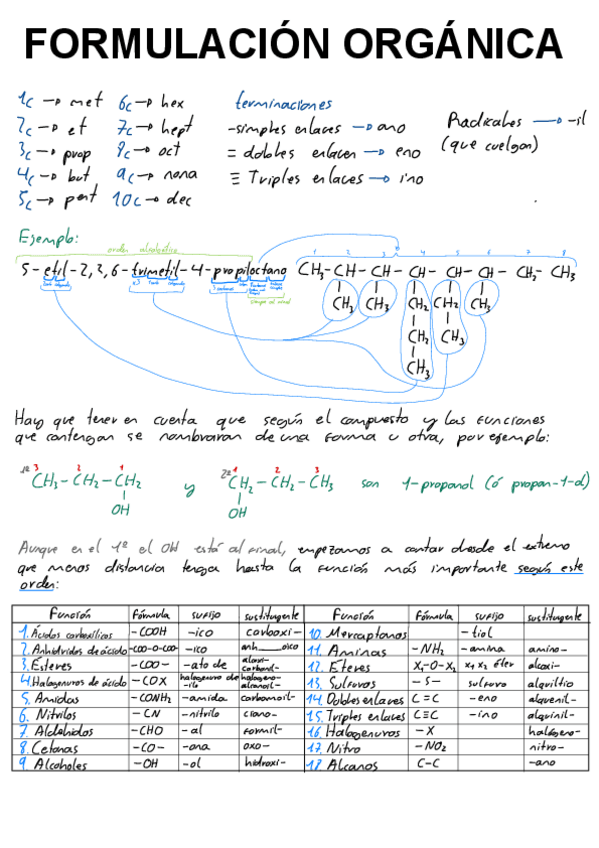 FORMULACIÓN ORGÁNICA
1c → met 6c → hex terminaciones
2c → et 7c → hept -simples enlaces → ano Radicales → -il
3c → prop 8c → oct = dobles enlaces → eno (que cuelgan)
4c → but 9c → nona ≡ Triples enlaces → ino
5c → pent 10c → dec
Ejemplo:
orden alfabético
1 2 3 4 5 6 7 8
5-etil-2,3,6-trimetil-4-propiloctano CH3-CH-CH-CH-CH-CH-CH2-CH3
CH3 CH3 CH2 CH2 CH3
CH2 CH3
CH3
Hay que tener en cuenta que según el compuesto y las funciones
que contengan se nombraran de una forma u otra, por ejemplo:
1º 3 2 1 2º 1 2 3
CH3-CH2-CH2 y CH2-CH2-CH3 son 1-propanol (ó propan-1-ol)
OH OH
Aunque en el 1º el OH está al final, empezamos a contar desde el extremo
que menos distancia tenga hasta la función más importante según este
orden:
Función Fórmula sufijo sustituyente Función Fórmula sufijo sustituyente
1. Ácidos carboxílicos -COOH -ico carboxi- 10. Mercaptanos -tiol
2. Anhídridos de ácido -CO-O-CO- -ico anh___oico 11. Aminas -NH2 -amina amino-
3. Ésteres -COO- -ato de 12. Éteres X1-O-X2 X1 X2 éter alcoxi-
4. Halogenuros de ácido -COX halogenuro de -ilo halogeno- alcanoil- 13. Sulfuros -S- sulfuro alquiltio
5. Amidas -CONH2 -amida carbamoil- 14. Dobles enlaces C=C -eno alquenil-
6. Nitrilos -CN -nitrilo ciano- 15. Triples enlaces C≡C -ino alquinil-
7. Aldehidos -CHO -al formil- 16. Halogenuros -X halógeno-
8. Cetonas -CO- -ona oxo- 17. Nitro -NO2 nitro-
9. Alcoholes -OH -ol hidroxi- 18. Alcanos C-C -ano